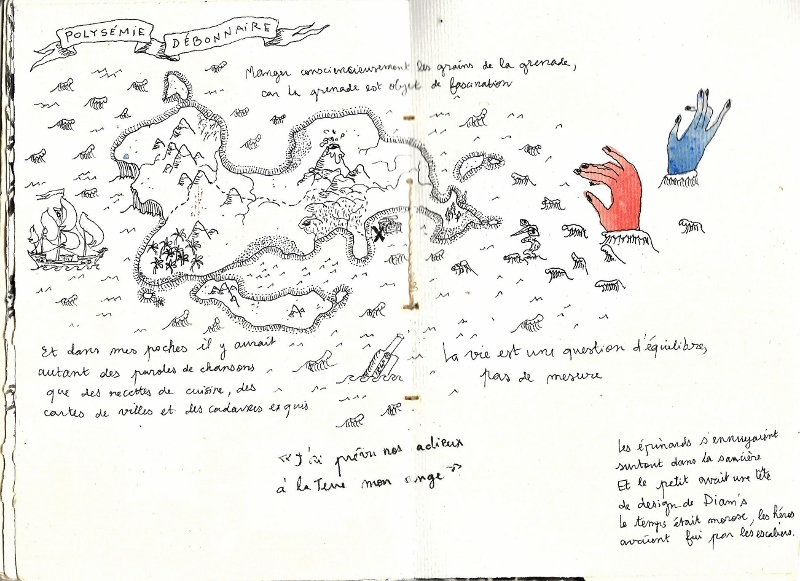 POLYSÉMIE DÉBONNAIRE
Manger consciencieusement les grains de la grenade,
car la grenade est objet de fascination
X
Et dans mes poches il y aurait
autant des paroles de chansons
que des recettes de cuisine, des
cartes de villes et des cadavres exquis
La vie est une question d'équilibre,
pas de mesure
« J'ai prévu nos adieux
à la Terre mon ange »
Les épinards s'ennuyaient
surtout dans la saucière
Et le petit avait une tête
de design de Diam's
le temps était morose, les héros
avaient fui par les escaliers.